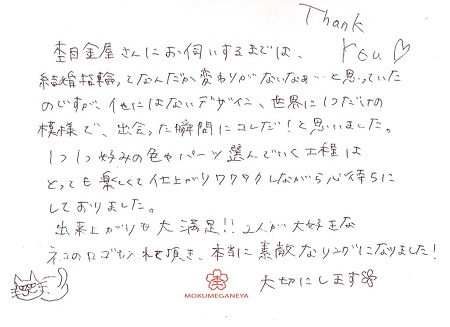 Thank
You♡
杢目金屋さんにお伺いするまでは、
結婚指輪ってなんだか変わりがないなぁ…と思っていた
のですが、他にはないデザイン、世界に1つだけの
模様で、出会った瞬間にコレだ!と思いました。
1つ1つ好みの色やパーツ選んでいく工程は
とっても楽しくて仕上がりワクワクしながら心待ちに
しておりました。
出来上がりも大満足!! 2人が大好きな
ネコのロゴも入れて頂き、本当に素敵なリングになりました!
大切にします
MOKUMEGANEYA